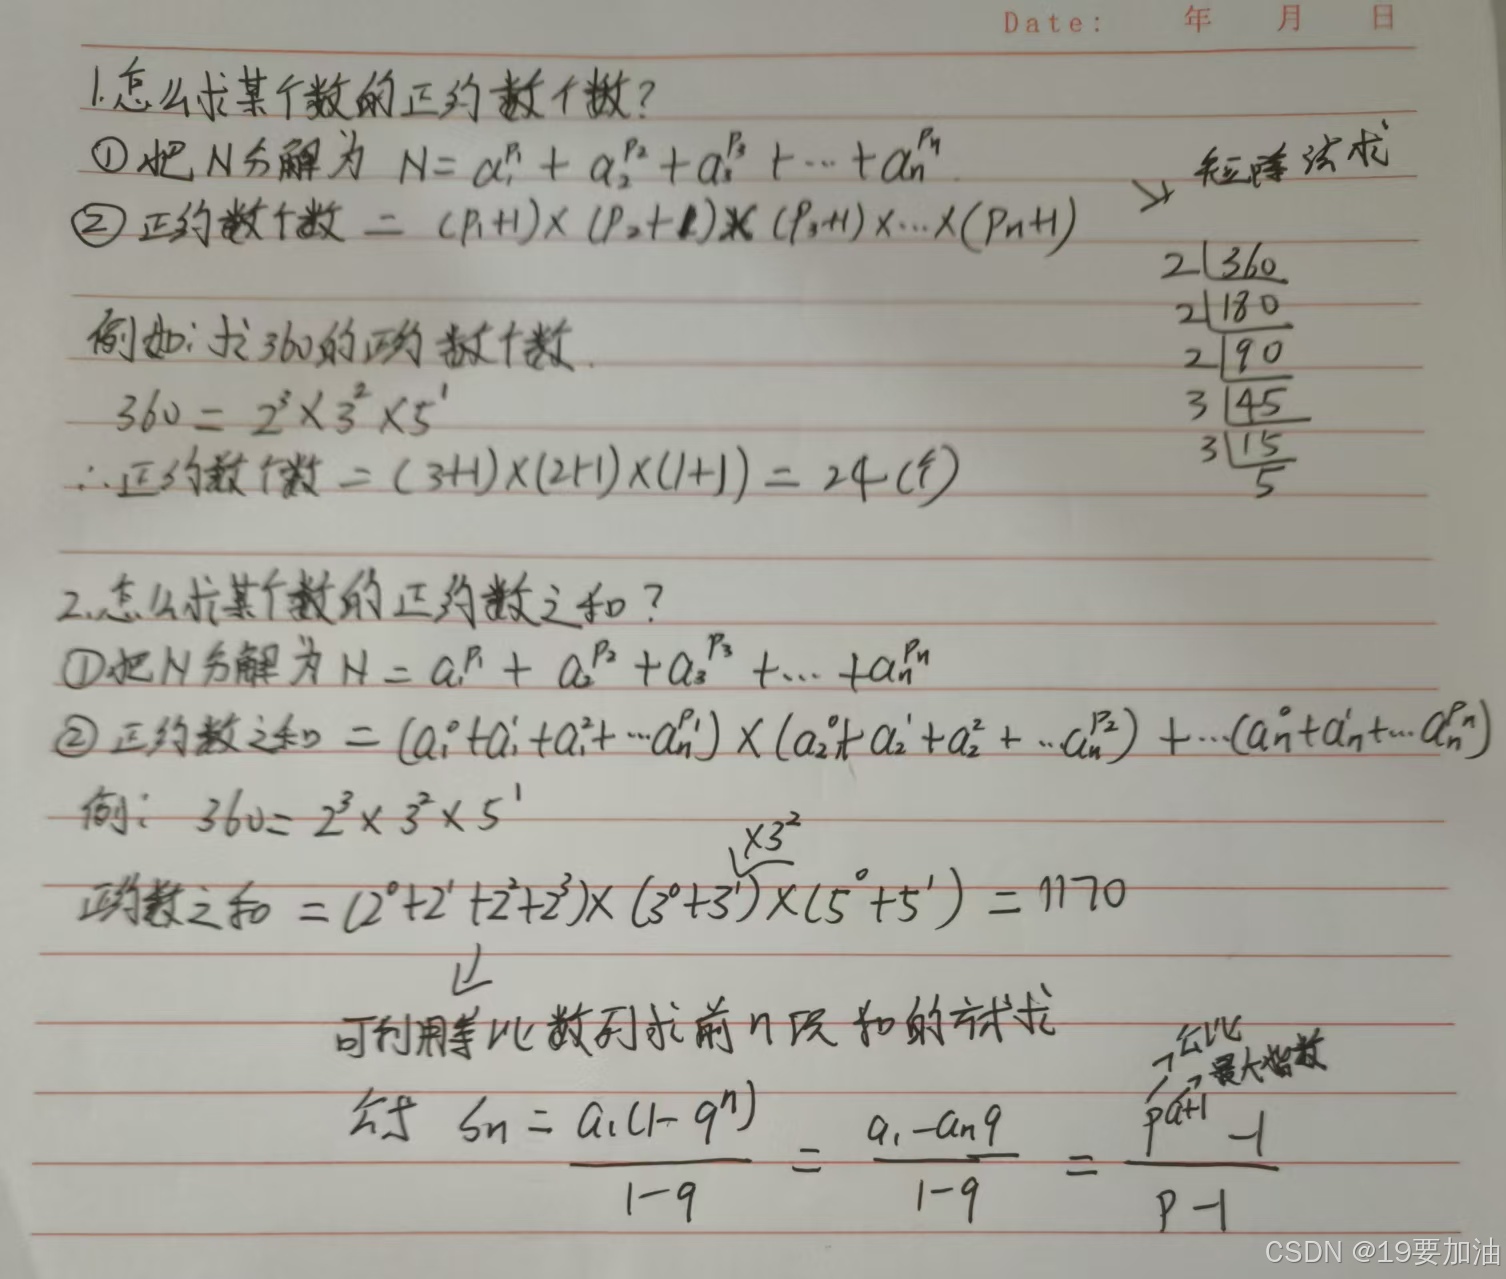 Date: 年 月 日
1.怎么求某个数的正约数个数?
①把N分解为 N=a₁^p₁ + a₂^p₂ + a₃^p₃ + … + aₙ^pₙ
→ 短除法求
②正约数个数 = (p₁+1)×(p₂+1)×(p₃+1)×…×(pₙ+1)
2 360
2 180
2 90
3 45
3 15
5
例如:求360的正约数个数.
360 = 2³×3²×5¹
∴正约数个数 = (3+1)×(2+1)×(1+1) = 24(个)
2.怎么求某个数的正约数之和?
①把N分解为N = a₁^p₁ + a₂^p₂ + a₃^p₃ + … + aₙ^pₙ
②正约数之和 = (a₁⁰+a₁¹+a₁²+…aₙ^p₁)×(a₂⁰+a₂¹+a₂²+…aₙ^p₂)+…(aₙ⁰+aₙ¹+…aₙ^pₙ)
例: 360=2³×3²×5¹
×3²
正约数之和 = (2⁰+2¹+2²+2³)×(3⁰+3¹)×(5⁰+5¹) = 1170
可利用等比数列求前n项和的方式求
公比
最大指数
公式 Sn = a₁(1-qⁿ)/(1-q) = (a₁-aₙq)/(1-q) = (p^(a+1) -1)/(p-1)
CSDN @19要加油